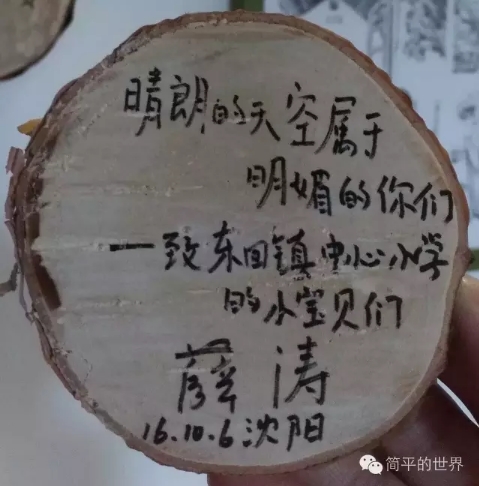 晴朗的天空属于
明媚的你们
一致东回镇中心小学
的小宝贝们
薛涛
16.10.6沈阳
简平的世界